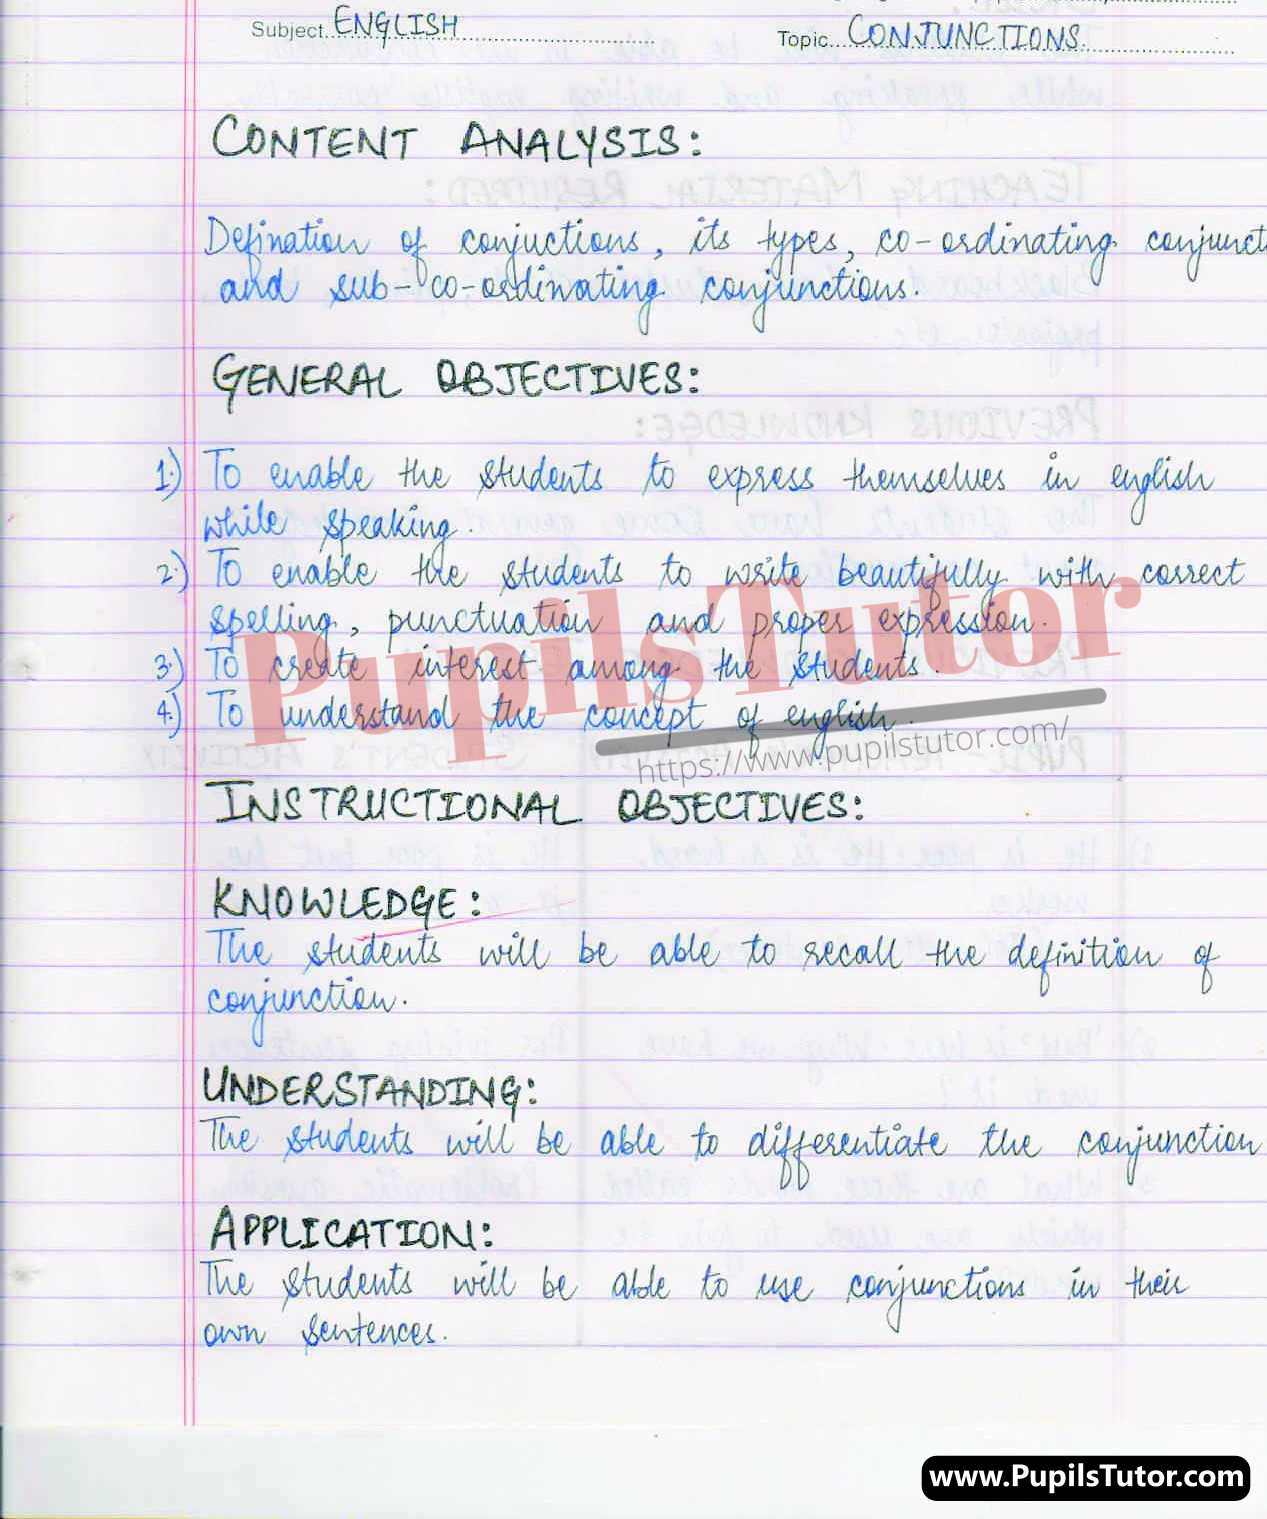 Subject ENGLISH
Topic CONJUNCTIONS.
CONTENT ANALYSIS:
Defination of conjuctions, its types, co-ordinating conjunct
and sub-co-ordinating conjunctions.
GENERAL OBJECTIVES:
1.) To enable the students to express themselves in english
while speaking.
2.) To enable the students to write beautifully with correct
spelling, punctuation and proper expression.
3.) To create interest among the students.
4.) To understand the concept of english.
PupilsTutor
https://www.pupilstutor.com/
INSTRUCTIONAL OBJECTIVES:
KNOWLEDGE:
The students will be able to recall the definition of
conjunction.
UNDERSTANDING:
The students will be able to differentiate the conjunction
APPLICATION:
The students will be able to use conjunctions in their
own sentences.
www.PupilsTutor.com